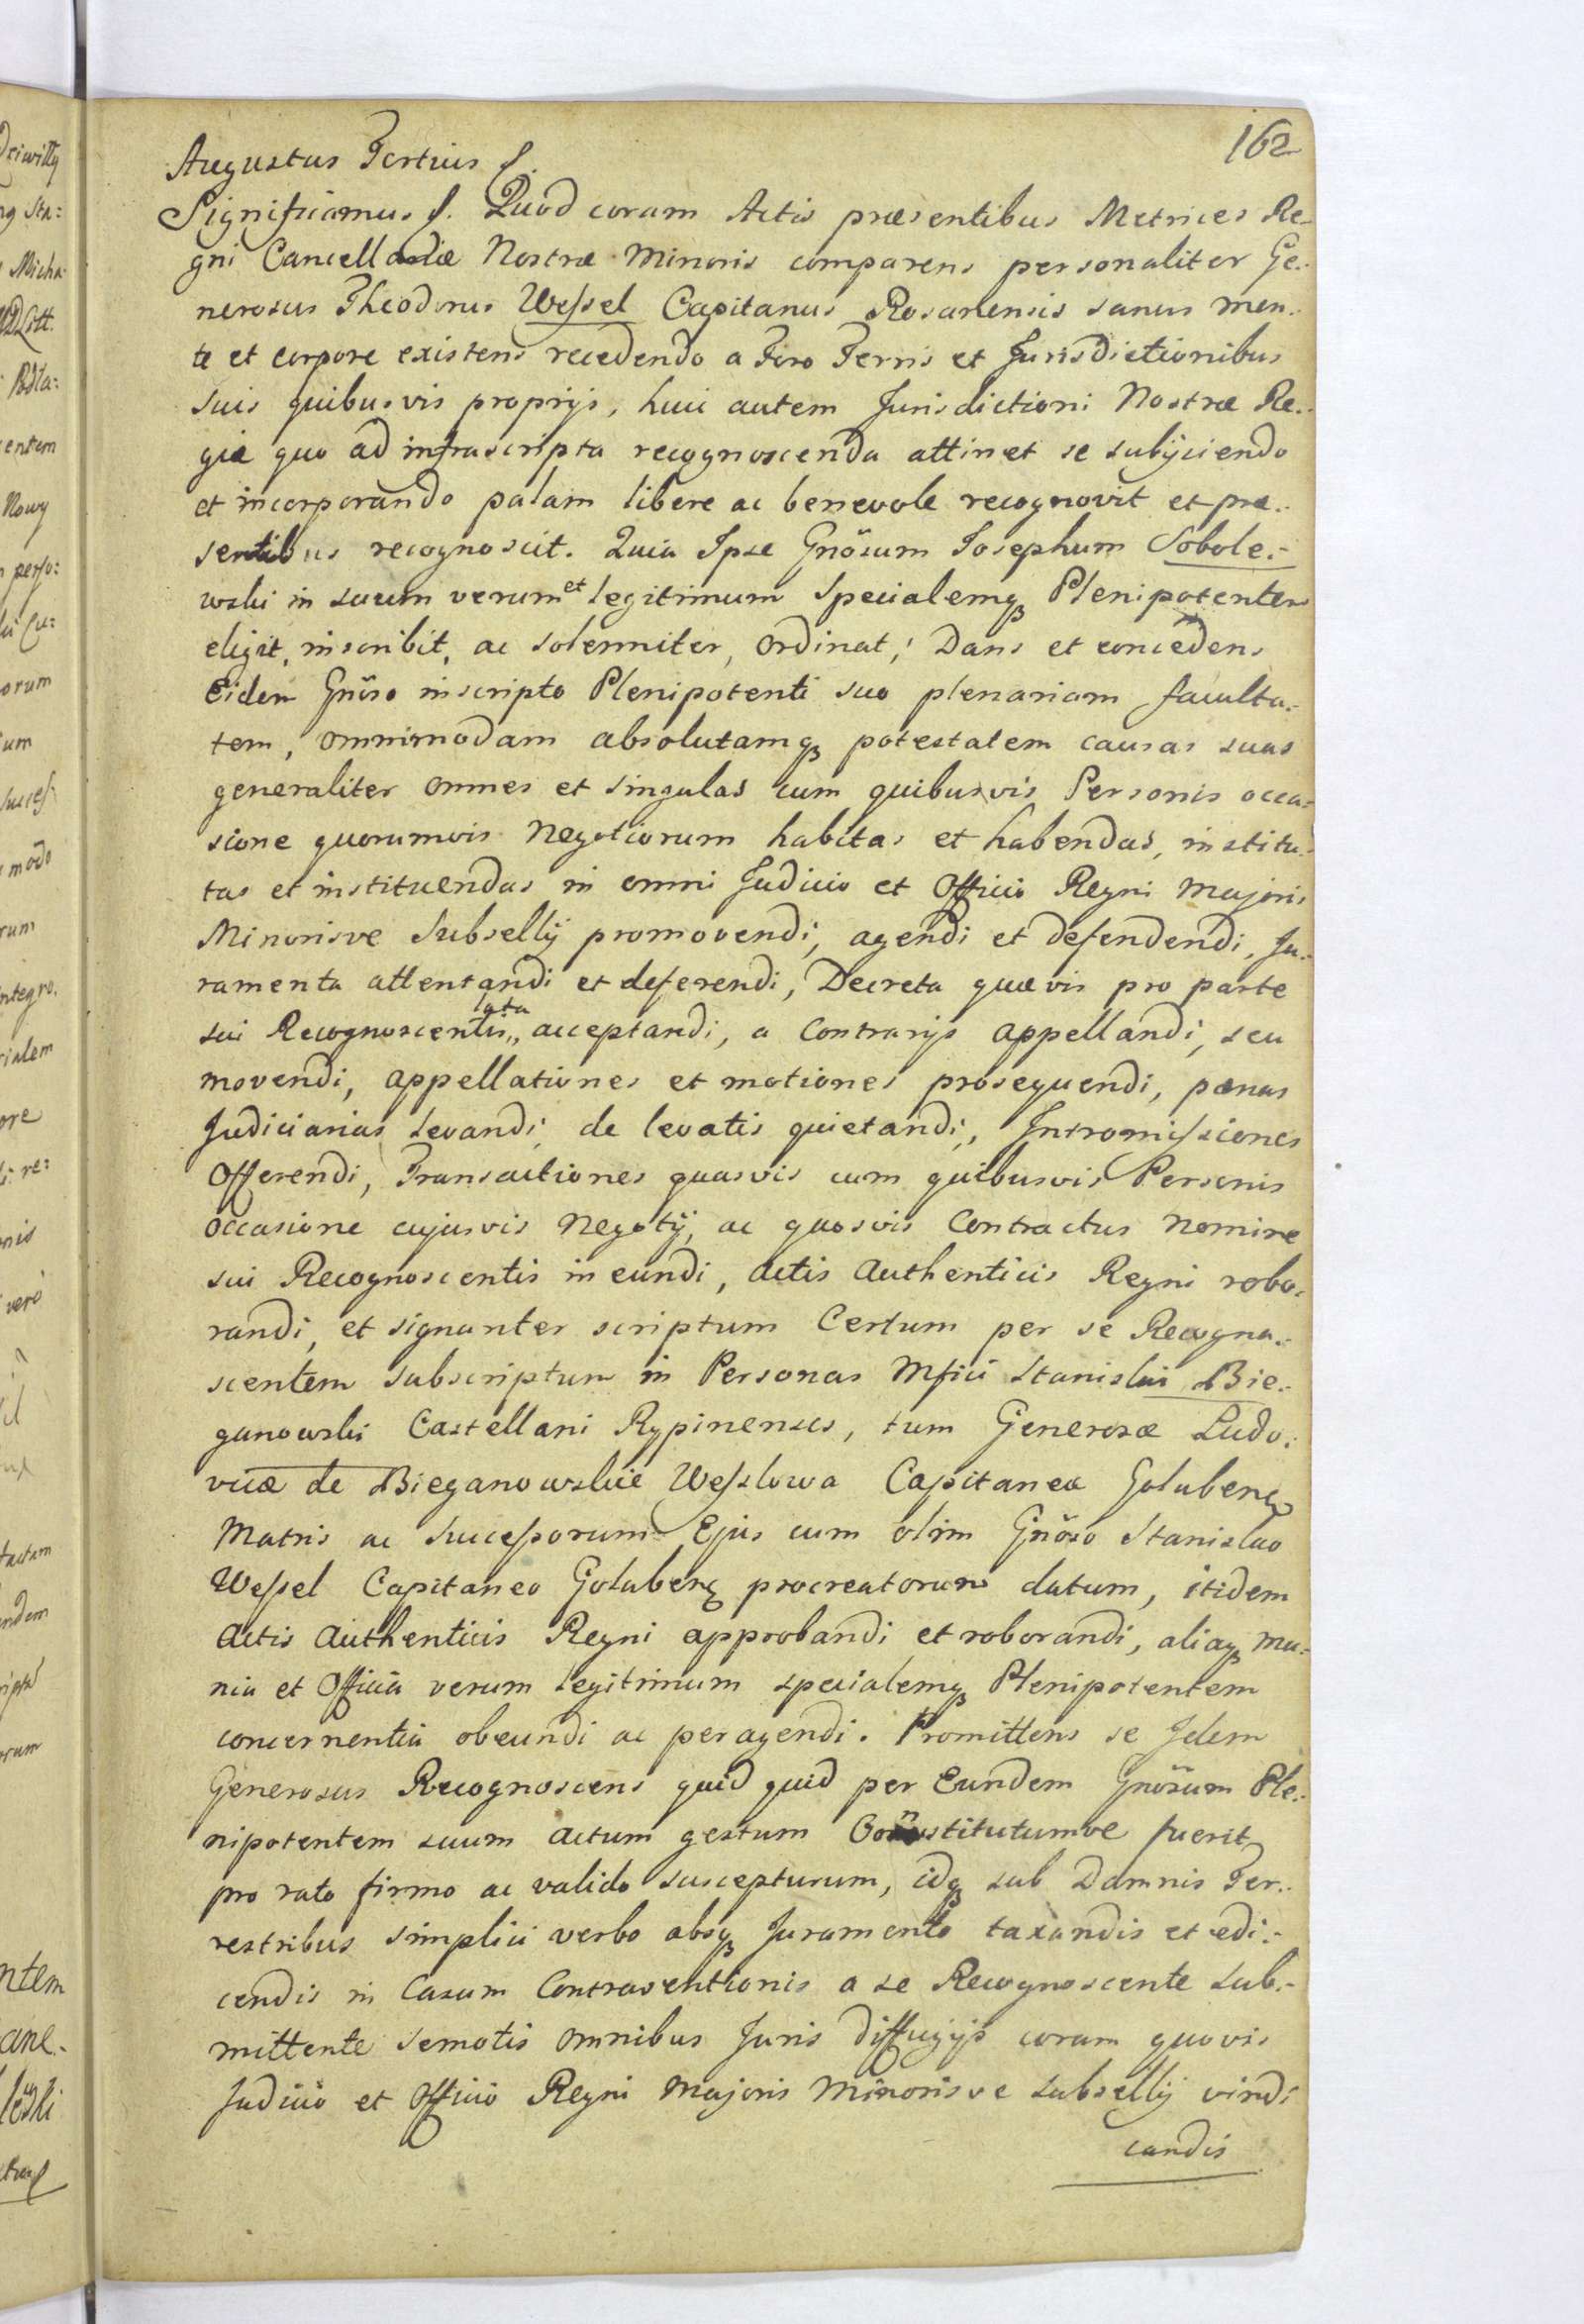 162
Augustus Tertius &.
Significamus &. Quod coram Actis præsentibus Metrices Re-
gni Cancellariæ Nostræ Minoris comparens personaliter Ge-
nerosus Theodorus Wessel Capitanus Rosanensis sanus men-
te et corpore existens recedendo a Foro Terris et Jurisdictionibus
suis quibusvis proprijs, huic autem Jurisdictioni Nostræ Re-
giæ quo ad infrascripta recognoscenda attinet se subijciendo
et incorporando palam libere ac benevole recognovit et præ-
sentibus recognoscit. Quia Ipse Gnösum Josephum Sobole-
wski in suum verum et legitimum Specialemq Plenipotentem
eligit, inscribit, ac solenniter, ordinat; Dans et concedens
Eidem Gnöso inscripto Plenipotenti suo plenariam faculta-
tem, omnimodam absolutamq potestatem causas suas
generaliter omnes et singulas cum quibusvis Personis occa-
sione quorumvis Negotiorum habitas et habendas, institu-
tas et instituendas in omni Judicio et Officio Regni Majoris
Minorisve Subsellij promovendi, agendi et defendendi, Ju-
ramenta attentandi et deferendi, Decreta quævis pro parte
sui Recognoscentis lata acceptandi, a Contrarijs appellandi, seu
movendi, appellationes et motiones prosequendi, pænas
Judiciarias levandi, de levatis quietandi, Intromissiones
Offerendi, Transactiones quasvis cum quibusvis Personis
occasione cujusvis Negotij, ac quosvis Contractus Nomine
sui Recognoscentis ineundi, Actis Authenticis Regni robo-
randi, et signanter scriptum Certum per se Recogno-
scentem subscriptum in Personas Mfici Stanislai Bie-
ganowski Castellani Rypinensis, tum Generosæ Ludo-
vicæ de Bieganowskie Wesslowa Capitaneæ Golubenę
Matris ac Successorum Ejus cum olim Gnöso Stanislao
Wessel Capitaneo Golubenę procreatorum datum, itidem
Actis Authenticis Regni approbandi et roborandi, aliaq mu-
nia et Officia verum legitimum specialemq Plenipotentem
concernentia obeundi ac peragendi. Promittens se Idem
Generosus Recognoscens quid quid per Eundem Gnösum Ple-
nipotentem suum actum gestum Constitutumve fuerit
pro rato firmo ac valido suscepturum, idq sub Damnis Ter-
restribus simplici verbo absq Juramento taxandis et edi-
cendis in Casum Contraventionis a se Recognoscente sub-
mittente semotis omnibus Juris diffugijs coram quovis
Judicio et Officio Regni Majoris Minorisve subsellij vindi
candis